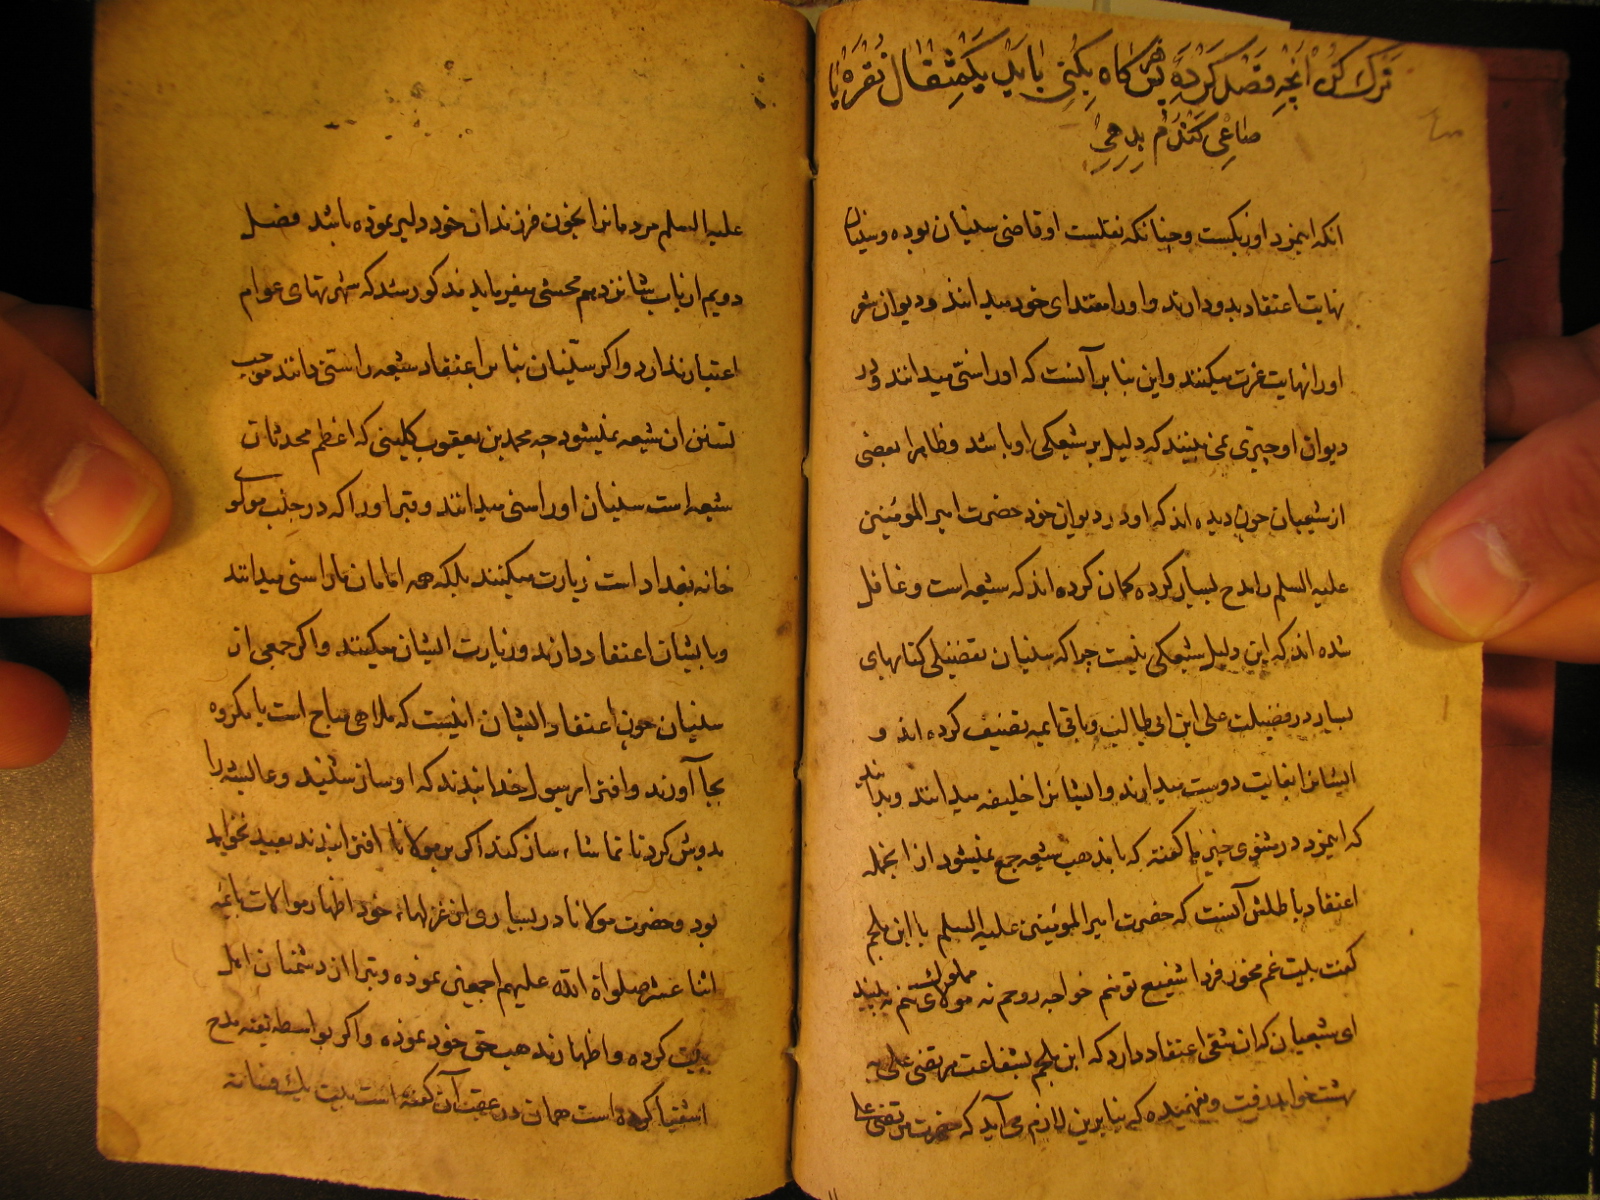 ترک کن آنچه قصد کرده پس هرگاه بکنی باید یکمثقال نقره یا
صاعی گندم بدهی
انکه اینمرد اوزبکست و چنانکه نقلست او قاضی سنیان بوده و سنیان
نهایت اعتقاد بدو دارند و او را مقتدای خود میدانند و دیوان شعر
او را نهایت عزت میکنند و این بنا بر آنست که او را سنّی میدانند و در
دیوان او چیزی نمی بینند که دلیل بر شیعگی او باشد و ظاهرا بعضی
از شیعیان چون دیده اند که او در دیوان خود حضرت امیر المومنین
علیه السلم را مدح بسیار کرده گمان کرده اند که شیعه است و غافل
شده اند که این دلیل شیعگی نیست چرا که سنیان تفضیلی کتابهای
بسیار در فضیلت علی ابن ابی طالب و باقی ایمه تصنیف کرده اند و
ایشانرا بغایت دوست میدارند و ایشانرا خلیفه میدانند و بدانند
که اینمرد در مثنوی چیزها گفته که با مذهب شیعه جمع نمیشود از انجمله
اعتقاد باطلش آنست که حضرت امیر المومنین علیه السلم با ابن ملجم
گفت بیت غم مخور فردا شفیع تو منم خواجه روحم نه مملوک تنم به بینید
ای شیعیان که ان شقی اعتقاد دارد که ابن ملجم بشفاعت مرتضی علی به
بهشت خواهد رفت و نفهمیده که بنابرین لازم می آید که حضرت مرتضی علی
علیه السلم مردمانرا بخون فرزندان خود دلیر نموده باشد فصل
دویم از باب شانزدهم محشی میفرماید مذکور شد که شهرتهای عوام
اعتبار ندارد و اگر سنّیان بنا بر اعتقاد شیعه را سنی دانند موجب
تسنن ان شیعه نمیشود چه محمد بن یعقوب کلینی که اعظم محدثان
شیعه است سنیان او را سنی میدانند و قبر او را که در جنب مولوی
خانه بغداد است زیارت میکنند بلکه همه امامان ما را سنی میدانند
و بایشان اعتقاد دارند و زیارت ایشان میکنند و اگر جمعی از
سنیان چون اعتقاد ایشان اینست که ملاهی مباح است یا مکروه
بجا آورند و افترا بر رسول خدا بندند که او ساز شنید و عایشه را
بدوش کرد تا تماشاء ساز کند اگر بر مولانا افترا بندند بعید نخواهد
بود و حضرت مولانا در بسیاری از غزلهاء خود اظهار موالات با ائمه
اثنا عشر صلواة الله علیهم اجمعین نموده و تبرا از دشمنان اهل
بیت کرده و اظهار مذهب حق خود نموده و اگر بواسطه تقیه مدح
اشقیا کرده است همان در عقب آن گفته است بیت لیک